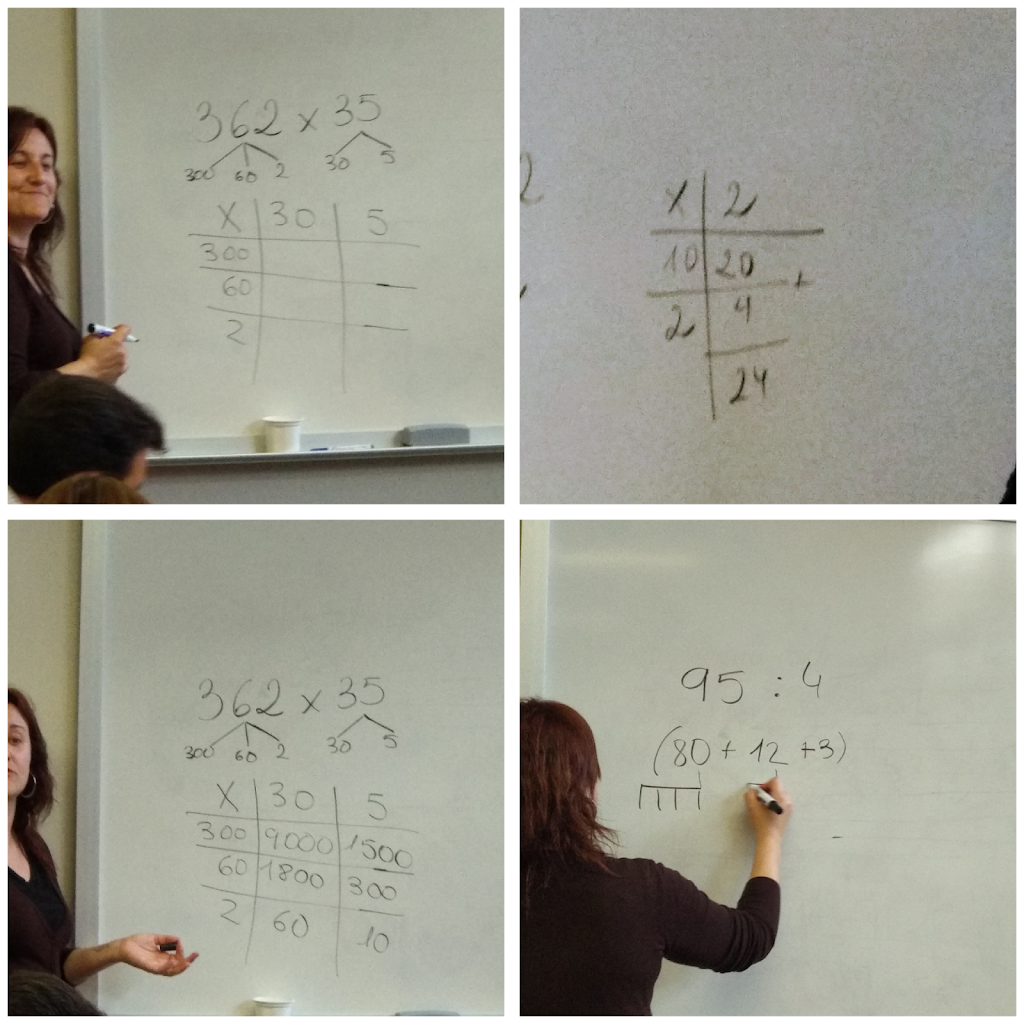 362 x 35
300 60 2 30 5
X 30 5
300
60
2
2
X 2
10 20
+
2 4
24
362 x 35
300 60 2 30 5
X 30 5
300 9000 1500
60 1800 300
2 60 10
95 : 4
(80 + 12 +3)